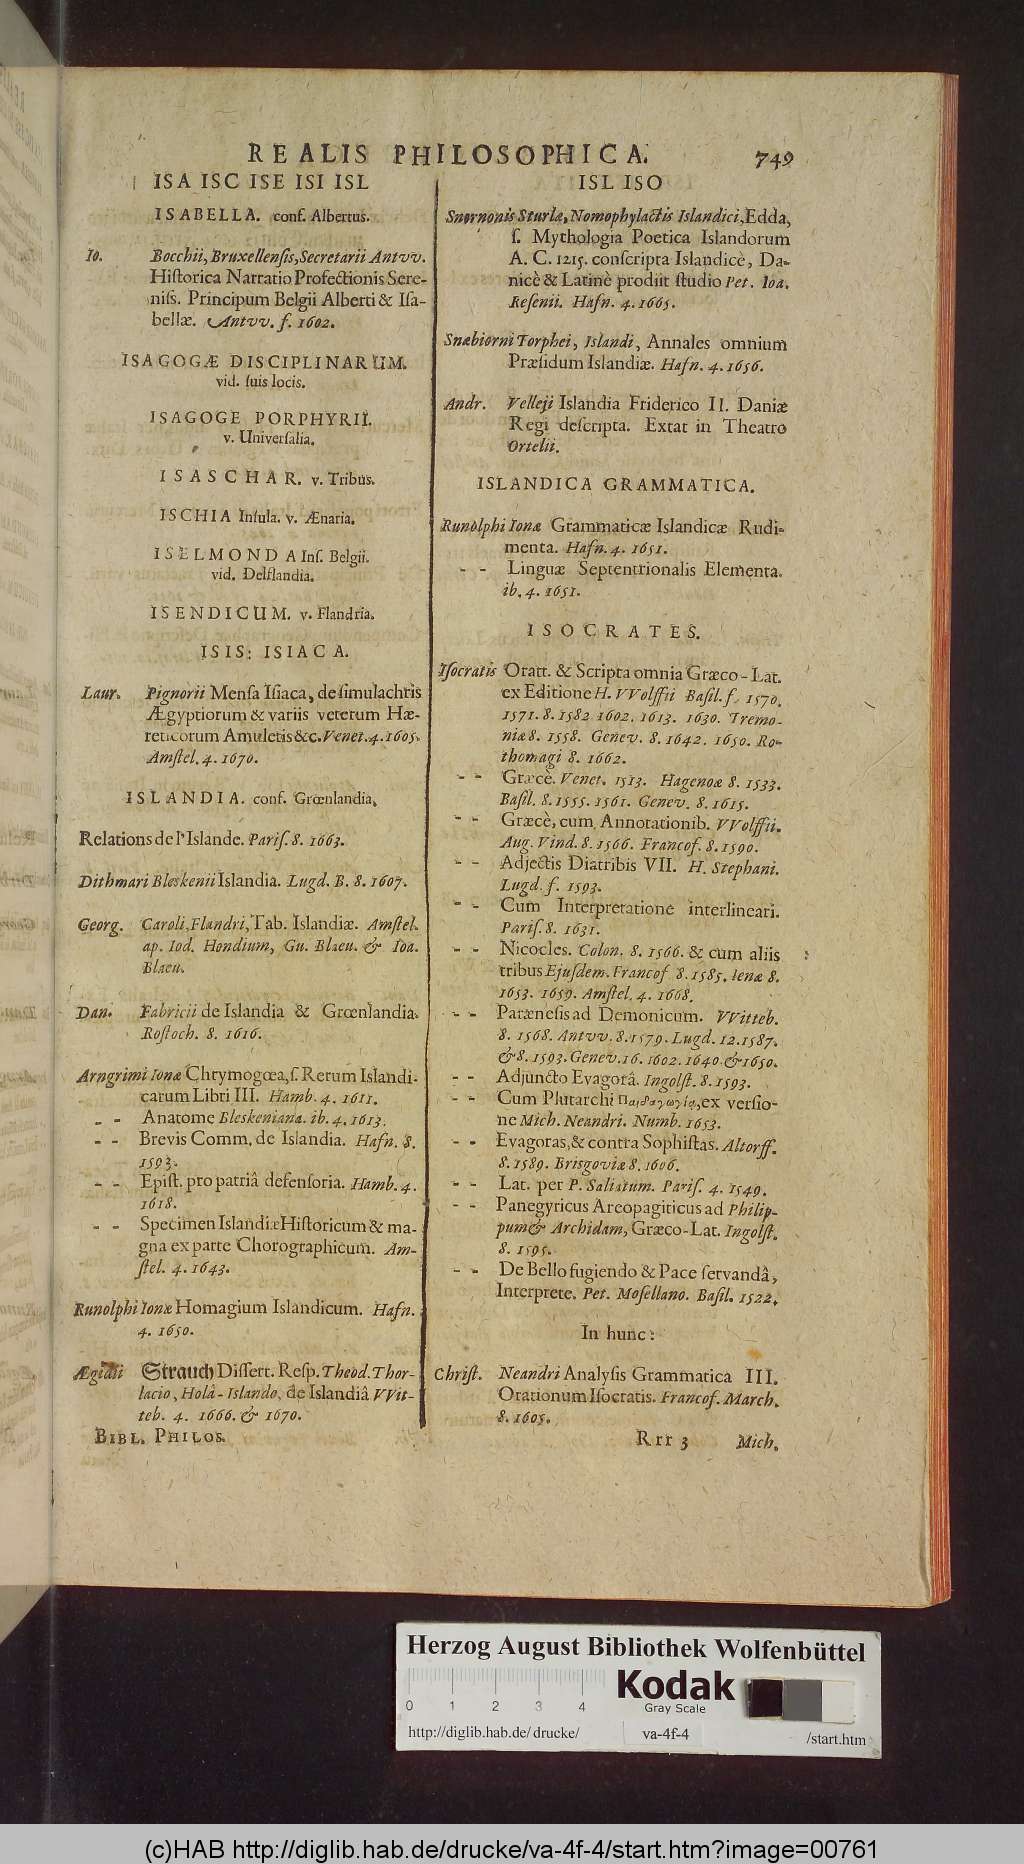 REALIS PHILOSOPHICA. 749
ISA ISC ISE ISI ISL
ISABELLA. conf. Albertus.
Io. Bocchii, Bruxellensis, Secretarii Antvv.
Historica Narratio Profectionis Sere-
niss. Principum Belgii Alberti & Isa-
bellæ. Antvv. f. 1602.
ISAGOGÆ DISCIPLINARUM.
vid. suis locis.
ISAGOGE PORPHYRII.
v. Universalia.
ISASCHAR. v. Tribus.
ISCHIA Insula. v. Ænaria.
ISELMONDA Ins. Belgii.
vid. Delflandia.
ISENDICUM. v. Flandria.
ISIS: ISIACA.
Laur. Pignorii Mensa Isiaca, de simulachris
Ægyptiorum & variis veterum Hæ-
reticorum Amuletis &c. Venet. 4. 1605.
Amstel. 4. 1670.
ISLANDIA. conf. Grœnlandia.
Relations de l'Islande. Paris. 8. 1663.
Dithmari Bleskenii Islandia. Lugd. B. 8. 1607.
Georg. Caroli, Flandri, Tab. Islandiæ. Amstel.
ap. Iod. Hondium, Gu. Blaeu. & Ioa.
Blaeu.
Dan. Fabricii de Islandia & Grœnlandia.
Rostoch. 8. 1616.
Arngrimi Ionæ Chrymogœa, s. Rerum Islandi-
carum Libri III. Hamb. 4. 1611.
- - Anatome Bleskeniana. ib. 4. 1613.
- - Brevis Comm. de Islandia. Hafn. 8.
1593.
- - Epist. pro patriâ defensoria. Hamb. 4.
1618.
- - Specimen Islandiæ Historicum & ma-
gna ex parte Chorographicum. Am-
stel. 4. 1643.
Runolphi Ionæ Homagium Islandicum. Hafn.
4. 1650.
Ægidii Strauch Dissert. Resp. Theod. Thor-
lacio, Holâ-Islando, de Islandiâ VVit-
teb. 4. 1666. & 1670.
BIBL. PHILOS.
ISL ISO
Snornonis Sturlæ, Nomophylactis Islandici, Edda,
s. Mythologia Poetica Islandorum
A. C. 1215. conscripta Islandicè, Da-
nicè & Latinè prodiit studio Pet. Ioa.
Resenii. Hafn. 4. 1665.
Snæbiorni Torphei, Islandi, Annales omnium
Præsidum Islandiæ. Hafn. 4. 1656.
Andr. Velleji Islandia Friderico II. Daniæ
Regi descripta. Extat in Theatro
Ortelii.
ISLANDICA GRAMMATICA.
Runolphi Ionæ Grammaticæ Islandicæ Rudi-
menta. Hafn. 4. 1651.
- - Linguæ Septentrionalis Elementa.
ib. 4. 1651.
ISOCRATES.
Isocratis Oratt. & Scripta omnia Græco-Lat.
ex Editione H. VVolffii Basil. f. 1570.
1571. 8. 1582 1602. 1613. 1630. Tremo-
niæ 8. 1558. Genev. 8. 1642. 1650. Ro-
thomagi 8. 1662.
- - Græcè. Venet. 1513. Hagenoæ 8. 1533.
Basil. 8. 1555. 1561. Genev. 8. 1615.
- - Græcè, cum Annotationib. VVolffii.
Aug. Vind. 8. 1566. Francof. 8. 1590.
- - Adjectis Diatribis VII. H. Stephani.
Lugd. f. 1593.
- - Cum Interpretatione interlineari.
Paris. 8. 1631.
- - Nicocles. Colon. 8. 1566. & cum aliis
tribus Ejusdem. Francof 8. 1585. Ienæ 8.
1653. 1659. Amstel. 4. 1668.
- - Parænesis ad Demonicum. VVitteb.
8. 1568. Antvv. 8. 1579. Lugd. 12. 1587.
& 8. 1593. Genev. 16. 1602. 1640. & 1650.
- - Adjuncto Evagorâ. Ingolst. 8. 1593.
- - Cum Plutarchi Παιδαγωγία, ex versio-
ne Mich. Neandri. Numb. 1653.
- - Evagoras, & contra Sophistas. Altorff.
8. 1589. Brisgoviæ 8. 1606.
- - Lat. per P. Saliatum. Paris. 4. 1549.
- - Panegyricus Areopagiticus ad Philip-
pum & Archidam, Græco-Lat. Ingolst.
8. 1595.
- - De Bello fugiendo & Pace servandâ,
Interprete. Pet. Mosellano. Basil. 1522.
In hunc:
Christ. Neandri Analysis Grammatica III.
Orationum Isocratis. Francof. March.
8. 1605.
Rrr 3 Mich.
Herzog August Bibliothek Wolfenbüttel
0 1 2 3 4
Kodak
Gray Scale
http://diglib.hab.de/drucke/ va-4f-4 /start.htm
(c)HAB http://diglib.hab.de/drucke/va-4f-4/start.htm?image=00761